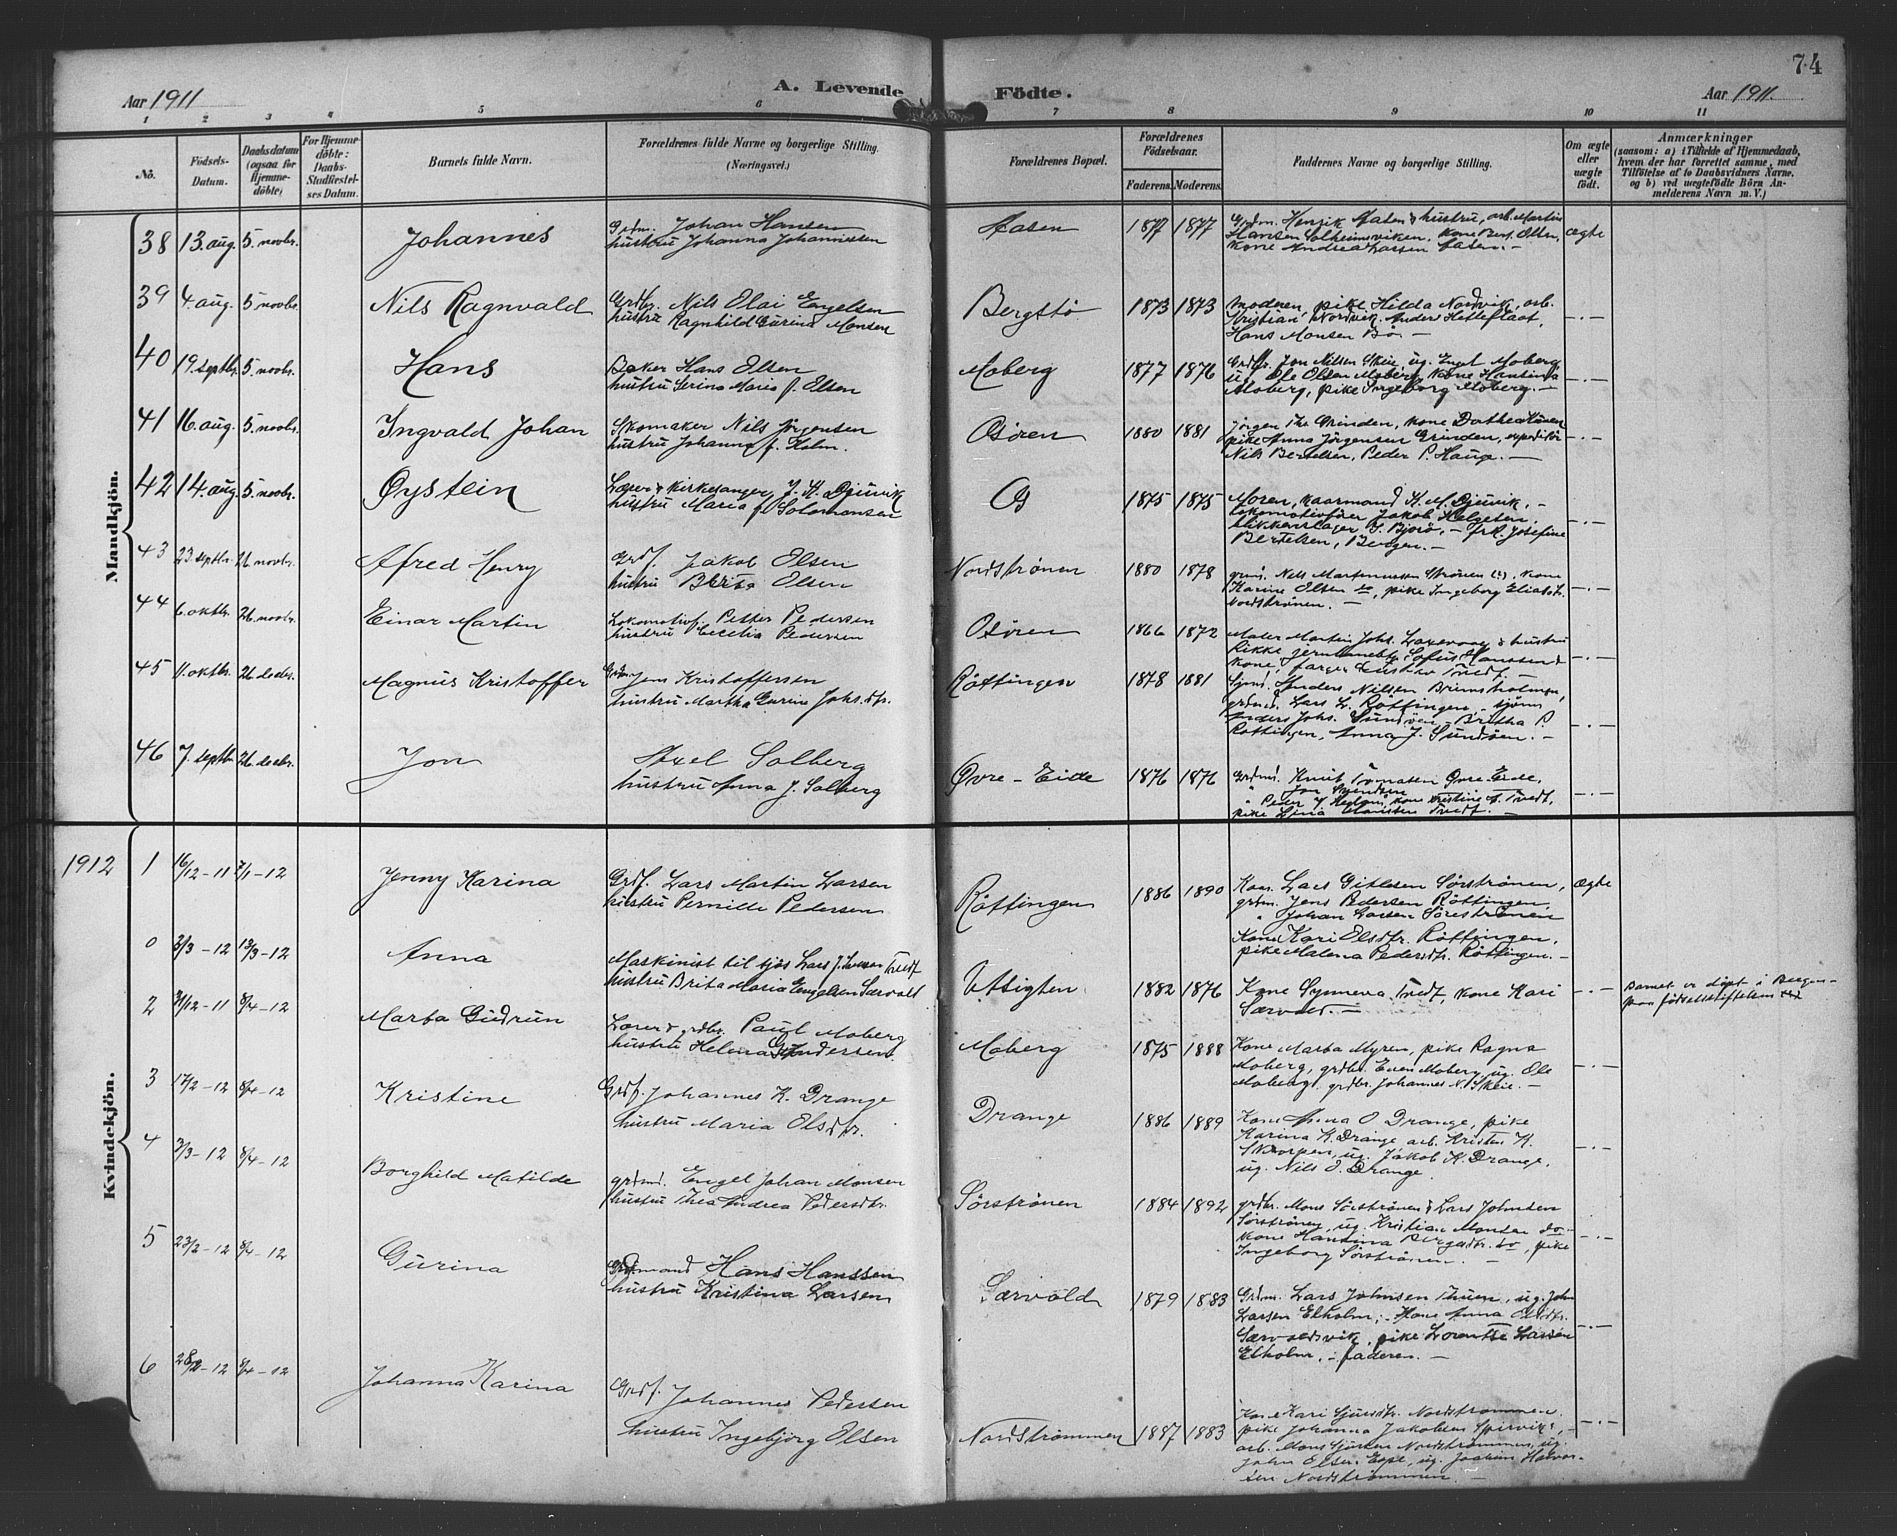 Aar 1911
A. Levende Födte.
Aar 1911.
74
1 2 3 4 5 6 7 8 9 10 11
No.
Födsels-Datum.
Daabsdatum (ogsaa for Hjemme-döbte)
For Hjemme-döbte: Daabs-Stadfæstel-ses Datum.
Barnets fulde Navn.
Forældrenes fulde Navne og borgerlige Stilling. (Næringsvei.)
Forældrenes Bopæl.
Forældrenes Födselsaar.
Faderens. Moderens.
Faddernes Navne og borgerlige Stilling.
Om ægte eller uægte födt.
Anmærkninger
(saasom: a) i Tilfælde af Hjemmedaab, hvem der har forrettet samme, med Tilföielse af to Daabsvidners Navne, og b) ved uægtefödte Börn Anmelderens Navn m. V.)
Mandkjön.
38 13. aug. 5. novbr. Johannes
Grdm. Johan Hansen
hustru Johanna Johannessen
Aasen 1877 1877
Grdm. Henrik Aasen & hustru, arb. Martin
Hansen Solheimsviken, kone Berit Olsen,
kone Andrea Larsen Aasen. -
ægte
39 4. aug. 5 novbr. Nils Ragnvald
Grdbr. Nils Olai Engelsen
hustru Ragnhild Gurina Monsen
Bergstö 1873 1873
Moderen, pike Hilda Nordvik, arb.
Kristian Nordvik, Anders Hetleflaat,
Hans Monsen Bö -
-.-
40 19. septbr. 5. novbr. Hans
Baker Hans Olsen
hustru Serina Maria f. Olsen
Moberg 1877 1876
Grdbr. Jon Nilsen Skeie, ug. Engel Moberg,
ug. Ole Olsen Moberg, kone Hantina
Moberg, pike Ingeborg Moberg. -
-.-
41 16. aug. 5. novbr. Ingvald Johan
Skomaker Nils Jörgensen
hustru Johanna f. Holm.
Osören 1880 1881
Jörgen Grinden, kone Dorthea
pike Anna Jörgensen Grinden, expeditör
Nils Bertelsen, Peder P. Hauge. -
-.-
42 14. aug 5. novbr. Öystein
Lærer & kirkesanger J. K. Djuvik
hustru Maria f. Solomonsen
Os 1875 1875
Moren, kaarmand K. M. Djuvik, -
lokomotivförer Jakob Helgesen,
blikkenslager S. Bjorö, - frk. Josefine
Bertelsen, Bergen. -
-.-
43 23 septbr. 26 novbr. Alfred Henry
Grdf. Jakob Olsen
hustru Berita Olsen
Nordströnen 1880 1878
grdm. Nils Martinussen Strönen, kone
Karine Olsen do, pike Ingeborg Eliasdr.
Nordströnen. -
-.-
44 6. oktbr. 26. novbr. Einar Martin
Lokomotivf. Petter Pedersen
hustru Cecilia Pedersen
Osören 1866 1872
Maler Martin Johs. Laxevaag & hustru
Rikke, Sofus Hanssen &
kone, farger Gustav Tvedt. -
-.-
45 11. oktbr. 26. decbr. Magnus Kristoffer
Grdm. Jens Kristoffersen
hustru Martha Gurine Johs.dtr.
Röttingen 1878 1881
Anders Nilsen Brimsholmen,
grdmd. Lars L. Röttingen,
Anders Johs. Sundöen, Britha P.
Röttingen, Anna J. Sundöen. -
-.-
46 7. septbr. 26. decbr. Jon
Axel Solberg
hustru Anna J. Solberg
Övre - Eide 1876 1876
Grdmd. Knut Tomasen Övre-Eide,
" Jon
" Peder, kone Kristine A. Tvedt,
pike Lina Tvedt. -
-.-
1912
Kvindekjön.
1 16/12-11 7/1-12 Jenny Karina
Grdf. Lars Martin Larsen
hustru Pernille Pedersen
Röttingen 1886 1890
Kaar. Lars Gitlesen Sörströnen,
grdm. Jens Pedersen Röttingen,
" Johan Larsen Söreströnen
Kone Kari Olsdtr. Röttingen,
pike Malena Pedersdtr. Röttingen. -
ægte
0 3/3-12 13/3-12 Anna
Maskinist til sjös Lars J. Tvedt
hustru Brita Maria Engelsen Særvold
Utsigten 1882 1876
Kone Synneva Tvedt, kone Kari
Særvold. -
-.-
Barnet er döpt i Bergen
paa födselsstiftelsen
2 31/12-11 8/4-12 Marta Gudrun
Lærer & grdbr. Paul Moberg
hustru Helena Andersen
Moberg 1875 1888
Kone Marta Myren, pike Ragna
Moberg, grdbr. Even Moberg, ug. Ole
Moberg, grdbr. Johannes N. Skeie. -
-.-
3 17/2-12 8/4-12 Kristine
Grdf. Johannes K. Drange
hustru Maria Olsdtr.
Drange 1886 1889
Kone Anna O Drange, pike
Karina K. Drange, arb. Kristen K.
Skorpen, ug. Jakob K. Drange,
ug. Nils O. Drange.
-.-
4 3/3-12 8/4-12 Borghild Matilde
grdmd. Engel Johan Monsen
hustru Thea Andrea Pedersdtr.
Sörströnen 1884 1892
grdbr. Mons Sörströnen & Lars Johnsen
Sörströnen, ug. Kristian Monsen do -
kone Hantina Bergesdtr. do, pike
Ingeborg Sörströnen. -
-.-
5 23/2-12 8/4-12 Gurina
Grdmand Hans Hanssen
hustru Kristina Larsen
Særvold 1879 1883
Grdm. Lars Johnsen Tuen, ug. John
Larsen Elholm, - Kone Anna Olsdtr.
Særvoldsvik, pike Lorentse Larsen
Elholm, - faderen. -
-.-
6 28/2-12 8/4-12 Johanna Karina
Grdf. Johannes Pedersen
hustru Ingebjörg Olsen
Nordströmmen 1887 1883
Kone Kari Sjursdtr. Nordströmmen,
pike Johanna Jakobsen, -
arb. Mons Nordströmmen, ug.
John Olsen, ug. Joakim Halvor-
sen Nordströmmen. -
-.-